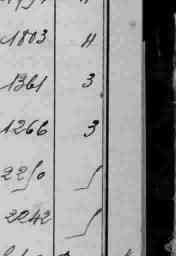 1803 4
1361 3
1266 3
2250 5
2242 5